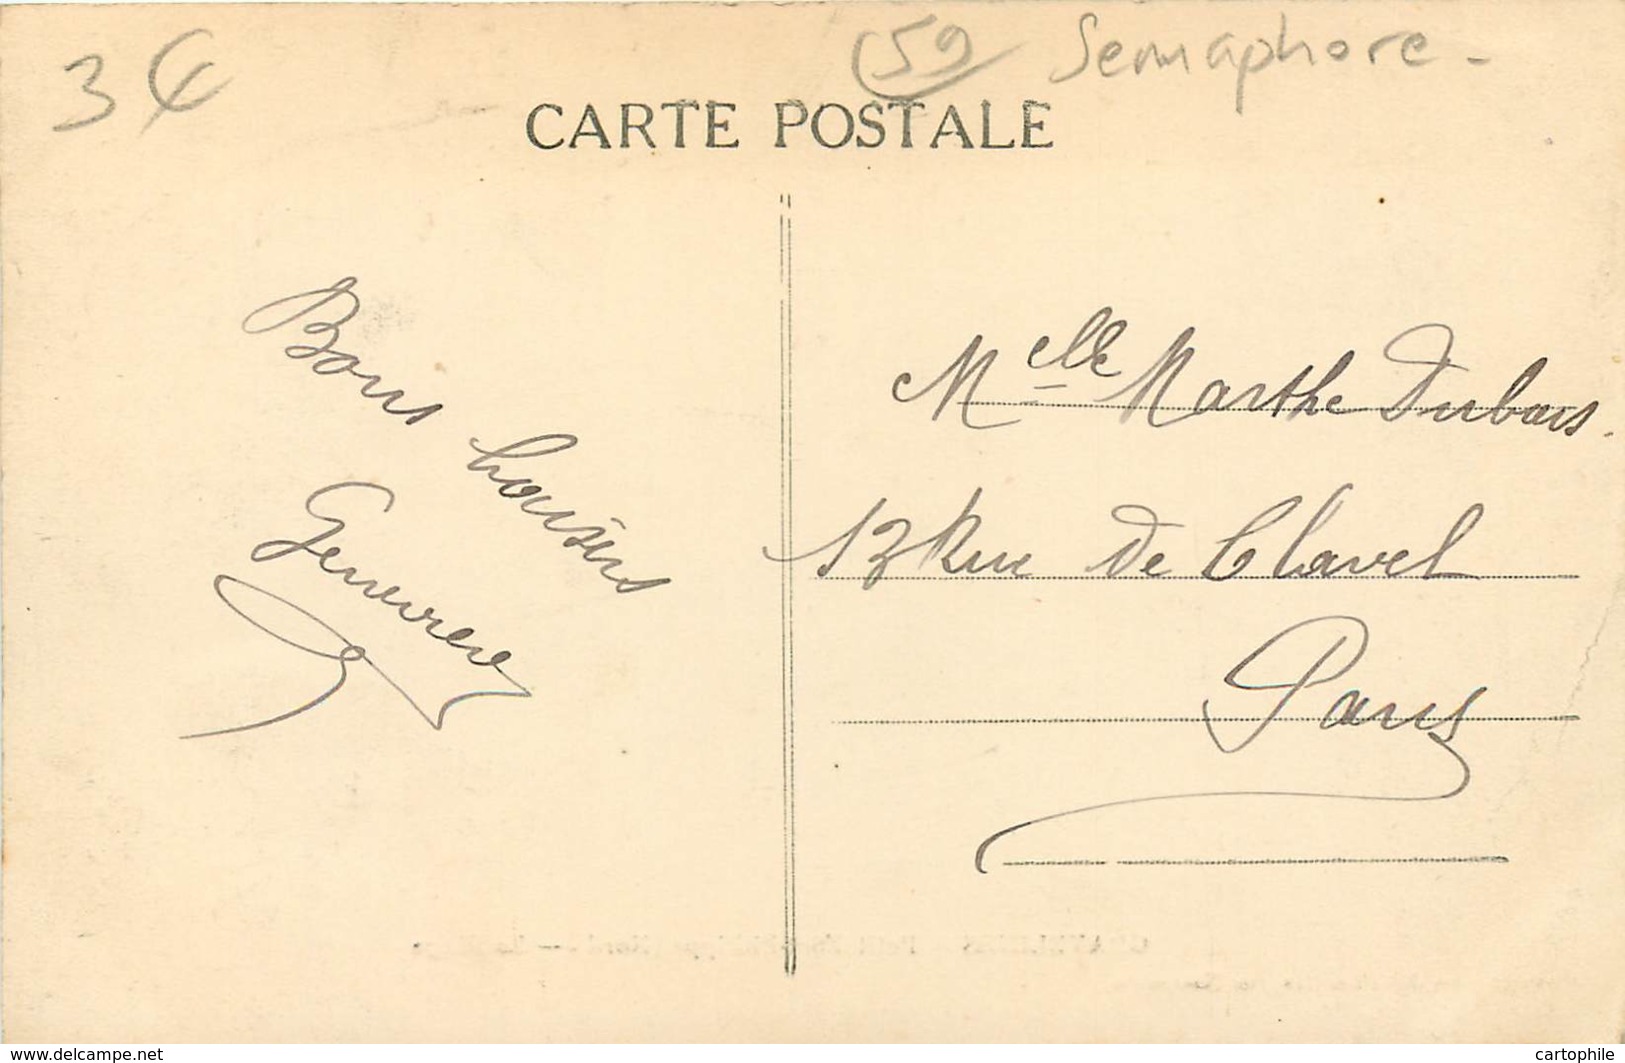 3 €
(59) Semaphore -
CARTE POSTALE
Bons baisers
Geneviève
Melle Marthe Dubois.
13 Rue de Clavel
Paris
www.delcampe.net
cartophile